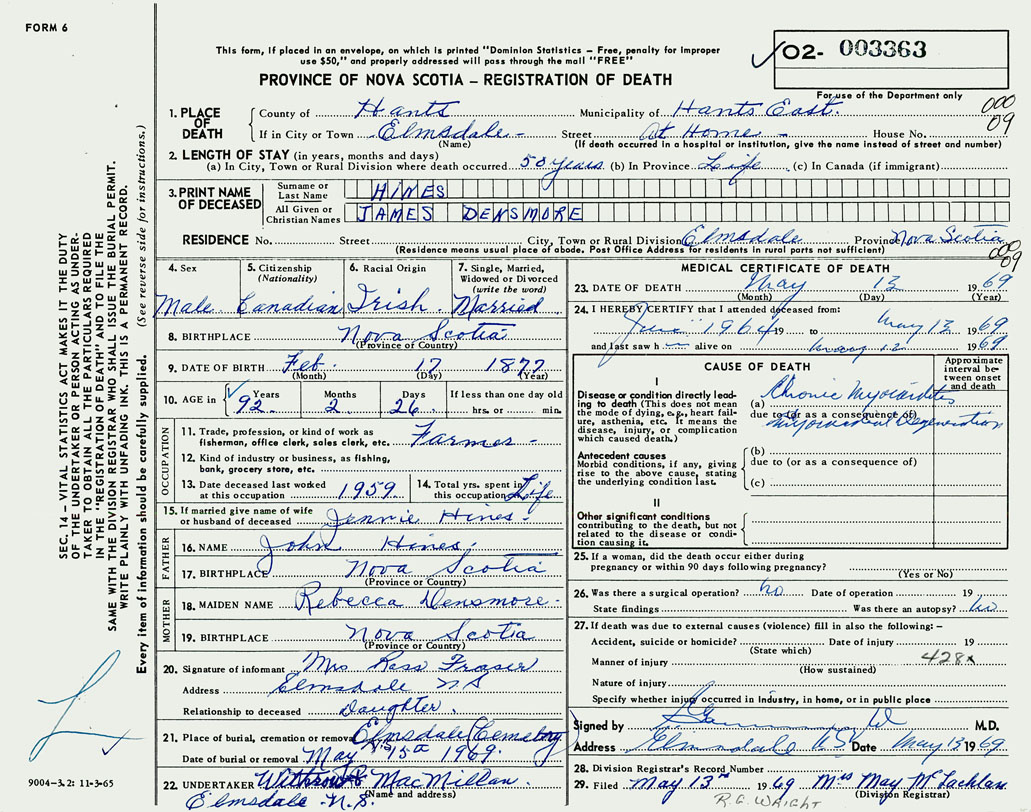 FORM 6
This form, if placed in an envelope, on which is printed "Dominion Statistics – Free, penalty for improper
use $50," and properly addressed will pass through the mail "FREE"
PROVINCE OF NOVA SCOTIA – REGISTRATION OF DEATH
02- 003363
For use of the Department only
000
09
1. PLACE OF DEATH County of Hants Municipality of Hants East.
If in City or Town Elmsdale - Street At Home - House No.
(Name) (If death occurred in a hospital or institution, give the name instead of street and number)
2. LENGTH OF STAY (in years, months and days)
(a) In City, Town or Rural Division where death occurred 50 years (b) In Province Life (c) In Canada (if immigrant)
3. PRINT NAME OF DECEASED Surname or Last Name HINES
All Given or Christian Names JAMES DENSMORE
RESIDENCE No. Street City, Town or Rural Division Elmsdale Province Nova Scotia
(Residence means usual place of abode. Post Office Address for residents in rural parts not sufficient)
000
09
4. Sex Male
5. Citizenship (Nationality) Canadian
6. Racial Origin Irish
7. Single, Married, Widowed or Divorced (write the word) Married
8. BIRTHPLACE Nova Scotia
(Province or Country)
9. DATE OF BIRTH Feb. 17 1877
(Month) (Day) (Year)
10. AGE in Years 92 Months 2 Days 26 If less than one day old hrs. or min.
OCCUPATION
11. Trade, profession, or kind of work as fisherman, office clerk, sales clerk, etc. Farmer -
12. Kind of industry or business, as fishing, bank, grocery store, etc.
13. Date deceased last worked at this occupation 1959
14. Total yrs. spent in this occupation Life
15. If married give name of wife or husband of deceased Jennie Hines.
FATHER
16. NAME John Hines.
17. BIRTHPLACE Nova Scotia
(Province or Country)
MOTHER
18. MAIDEN NAME Rebecca Densmore -
19. BIRTHPLACE Nova Scotia
(Province or Country)
20. Signature of informant Mrs Ross Fraser
Address Elmsdale N S
Relationship to deceased Daughter.
21. Place of burial, cremation or removal Elmsdale Cemetery
Date of burial or removal May 15th 1969.
22. UNDERTAKER Withrow & MacMillan.
(Name and address)
Elmsdale - N.S.
MEDICAL CERTIFICATE OF DEATH
23. DATE OF DEATH May 13 1969
(Month) (Day) (Year)
24. I HEREBY CERTIFY that I attended deceased from:
June 1964 19 to May 13 1969
and last saw h alive on May 12 1969
CAUSE OF DEATH
Approximate interval between onset and death
I
Disease or condition directly leading to death (This does not mean the mode of dying, e.g., heart failure, asthenia, etc. It means the disease, injury, or complication which caused death.)
(a) Chronic Myocarditis
due to (or as a consequence of)
Myocardial Degeneration
Antecedent causes
Morbid conditions, if any, giving rise to the above cause, stating the underlying condition last.
(b)
due to (or as a consequence of)
(c)
II
Other significant conditions contributing to the death, but not related to the disease or condition causing it.
25. If a woman, did the death occur either during pregnancy or within 90 days following pregnancy?
(Yes or No)
26. Was there a surgical operation? No Date of operation 19
State findings Was there an autopsy? No
27. If death was due to external causes (violence) fill in also the following: –
Accident, suicide or homicide? Date of injury 19
(State which)
Manner of injury 428x
(How sustained)
Nature of injury
Specify whether injury occurred in industry, in home, or in public place
Signed by M.D.
Address Elmsdale N.S. Date May 13 1969
28. Division Registrar's Record Number
29. Filed May 13th 1969 Miss May McLachlan
(Division Registrar)
R.G. WRIGHT
SEC. 14 – VITAL STATISTICS ACT MAKES IT THE DUTY
OF THE UNDERTAKER OR PERSON ACTING AS UNDER-
TAKER TO OBTAIN ALL THE PARTICULARS REQUIRED
IN THE "REGISTRATION OF DEATH" AND TO FILE THE
SAME WITH THE DIVISION REGISTRAR WHO SHALL ISSUE THE BURIAL PERMIT.
WRITE PLAINLY WITH UNFADING INK. THIS IS A PERMANENT RECORD.
Every item of information should be carefully supplied. (See reverse side for instructions.)
9004-3.2: 11-3-65